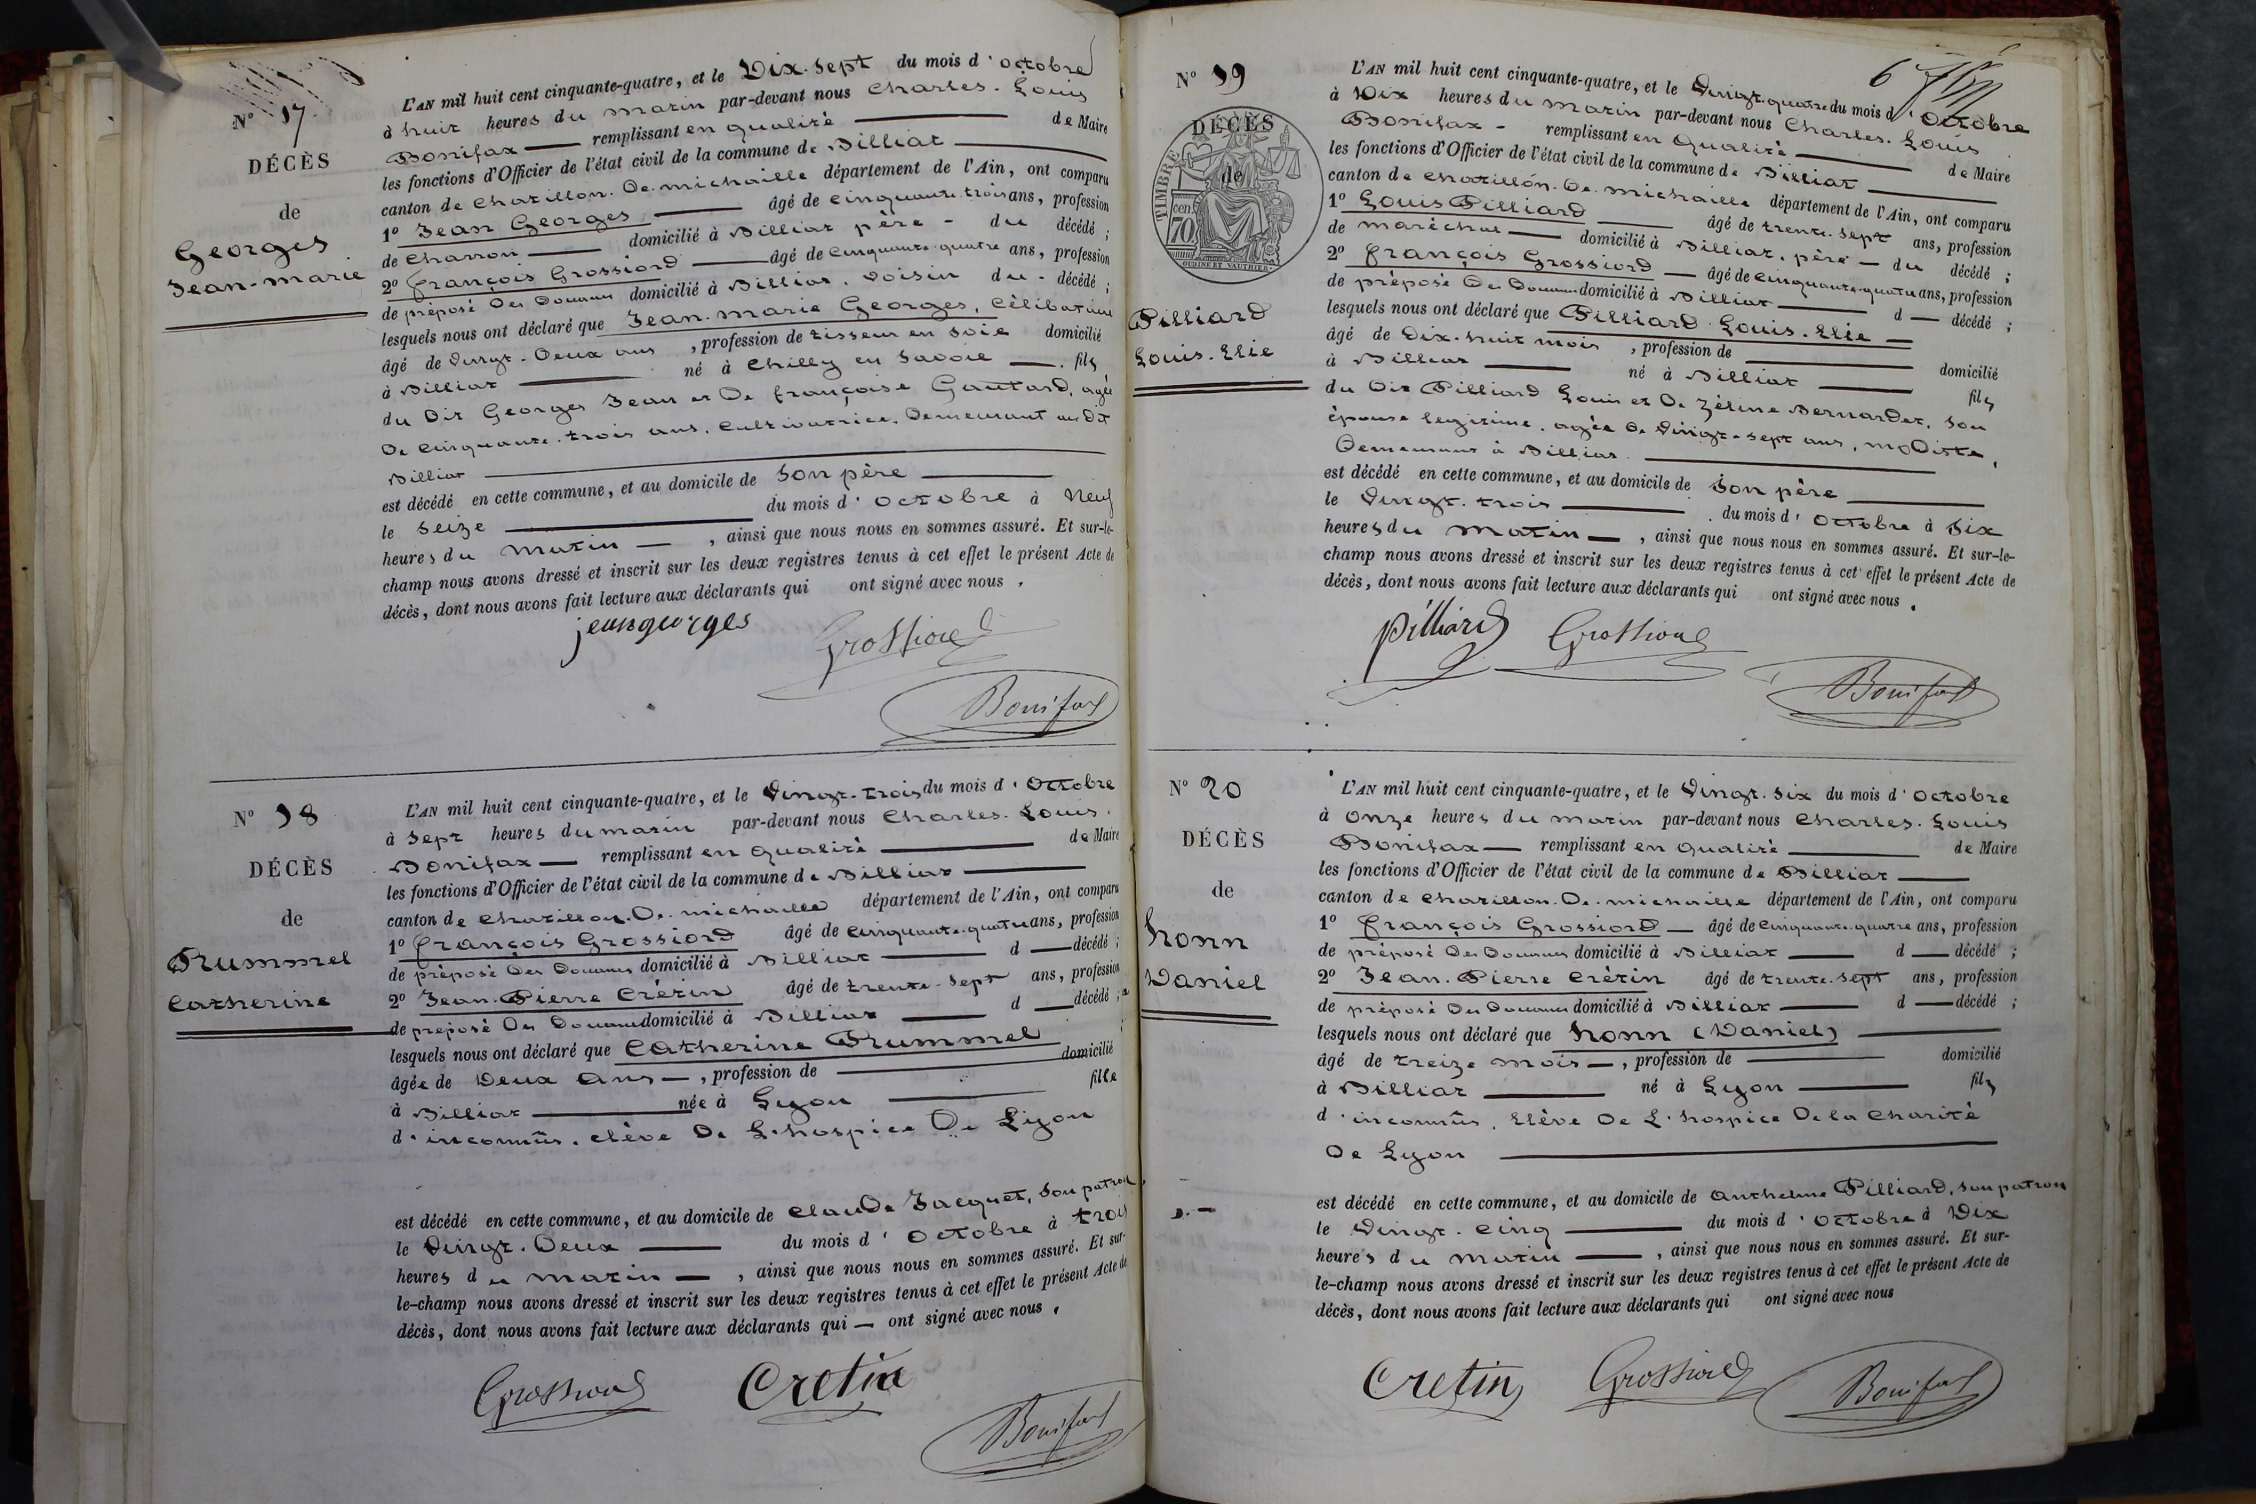 N° 17
DÉCÈS
de
Georges
Jean-marie
L'AN mil huit cent cinquante-quatre, et le Dix-sept du mois d'octobre
à huit heures du matin par-devant nous Charles-Louis
Bonifax — remplissant en qualité — de Maire
les fonctions d'Officier de l'état civil de la commune de Billiat —
canton de Chatillon-De-michaille département de l'Ain, ont comparu
1° Jean Georges — âgé de cinquante-trois ans, profession
de charron — domicilié à Billiat père - du décédé ;
2° françois Grossiord — âgé de cinquante-quatre ans, profession
de préposé Des Douanes domicilié à Billiat. voisin du - décédé ;
lesquels nous ont déclaré que Jean-marie Georges, célibataire
âgé de vingt-Deux ans , profession de tisseur en soie domicilié
à Billiat — né à Chilly en Savoie —. fils
du Dit Georges Jean et De françoise Gautard, agée
De cinquante-trois ans, cultivatrice, Demeurant au dit
Billiat —
est décédé en cette commune, et au domicile de son père —
le seize — du mois d'octobre à neuf
heures du matin — , ainsi que nous nous en sommes assuré. Et sur-le-
champ nous avons dressé et inscrit sur les deux registres tenus à cet effet le présent Acte de
décès, dont nous avons fait lecture aux déclarants qui ont signé avec nous .
jeangeorges Grossiord
Bonifax
N° 18
DÉCÈS
de
Prummel
Catherine
L'AN mil huit cent cinquante-quatre, et le vingt-trois du mois d'octobre
à sept heures du matin par-devant nous Charles-Louis.
Bonifax — remplissant en qualité — de Maire
les fonctions d'Officier de l'état civil de la commune de Billiat —
canton de Chatillon-De-michaille département de l'Ain, ont comparu
1° françois Grossiord âgé de cinquante-quatre ans, profession
de préposé Des Douanes domicilié à Billiat — d — décédé ;
2° Jean-Pierre Crétin âgé de trente-sept ans, profession
de préposé Des Douanes domicilié à Billiat — d — décédé ;
lesquels nous ont déclaré que Catherine Prummel
âgée de Deux ans — , profession de — domicilié
à Billiat — née à Lyon — fille
d'inconnûs, élève De L'hospice De Lyon
est décédé en cette commune, et au domicile de Claude Jacquet, son patron
le vingt-Deux — du mois d'octobre à trois
heures du matin — , ainsi que nous nous en sommes assuré. Et sur-
le-champ nous avons dressé et inscrit sur les deux registres tenus à cet effet le présent Acte de
décès, dont nous avons fait lecture aux déclarants qui — ont signé avec nous .
Grossiord Cretin
Bonifax
N° 19
DÉCÈS
de
TIMBRE
70 cen.
OUDINE ET VAUTHIER
Pilliard
Louis-Elie
6
L'AN mil huit cent cinquante-quatre, et le vingt-quatre du mois d'octobre
à Dix heures du matin par-devant nous Charles-Louis
Bonifax - remplissant en qualité — de Maire
les fonctions d'Officier de l'état civil de la commune de Billiat —
canton de Chatillon-De-michaille département de l'Ain, ont comparu
1° Louis Pilliard — âgé de trente-sept ans, profession
de maréchal — domicilié à Billiat, père — du décédé ;
2° françois Grossiord — âgé de cinquante-quatre ans, profession
de préposé Des Douanes domicilié à Billiat — d — décédé ;
lesquels nous ont déclaré que Pilliard Louis-Elie —
âgé de Dix-huit mois , profession de — domicilié
à Billiat — né à Billiat — fils
du Dit Pilliard Louis et De Zéline Bernardet, son
épouse legitime, agée de vingt-sept ans, modiste,
Demeurant à Billiat. —
est décédé en cette commune, et au domicile de son père —
le vingt-trois — du mois d'octobre à six
heures du matin — , ainsi que nous nous en sommes assuré. Et sur-le-
champ nous avons dressé et inscrit sur les deux registres tenus à cet effet le présent Acte de
décès, dont nous avons fait lecture aux déclarants qui ont signé avec nous .
Pilliard Grossiord
Bonifax
N° 20
DÉCÈS
de
honn
Daniel
L'AN mil huit cent cinquante-quatre, et le vingt-six du mois d'octobre
à onze heures du matin par-devant nous Charles-Louis
Bonifax — remplissant en qualité — de Maire
les fonctions d'Officier de l'état civil de la commune de Billiat —
canton de Chatillon-De-michaille département de l'Ain, ont comparu
1° françois Grossiord — âgé de cinquante-quatre ans, profession
de préposé Des Douanes domicilié à Billiat — d — décédé ;
2° Jean-Pierre Crétin âgé de trente-sept ans, profession
de préposé Des Douanes domicilié à Billiat — d — décédé ;
lesquels nous ont déclaré que honn (Daniel) —
âgé de treize mois — , profession de — domicilié
à Billiat — né à Lyon — fils
d'inconnûs, Elève De L'hospice De la Charité
De Lyon —
est décédé en cette commune, et au domicile de Anthelme Pilliard, son patron
le vingt-cinq — du mois d'octobre à Dix
heures du matin — , ainsi que nous nous en sommes assuré. Et sur-
le-champ nous avons dressé et inscrit sur les deux registres tenus à cet effet le présent Acte de
décès, dont nous avons fait lecture aux déclarants qui ont signé avec nous
Cretin Grossiord
Bonifax